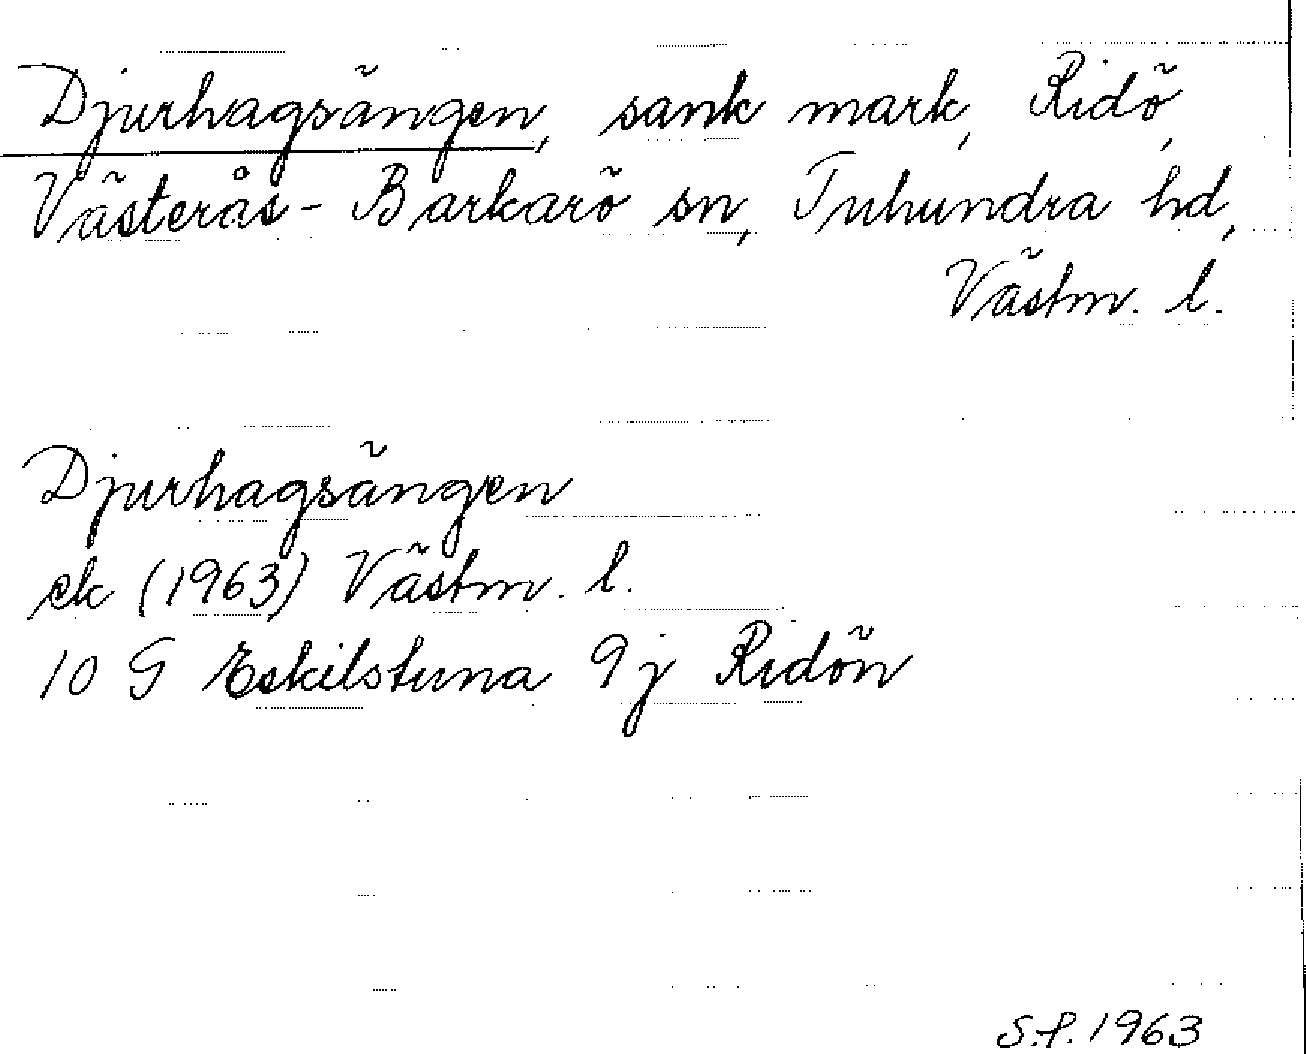 Djurhagsängen, sank mark, Ridö,
Västerås-Barkarö sn, Tuhundra hd,
Västm. l.
Djurhagsängen
ek (1963) Västm. l.
10 G Eskilstuna 9j Ridön
S.P. 1963